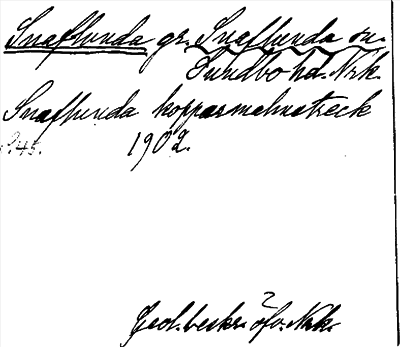 Snaflunda gr. Snaflunda sn.
Sundbo hd. Nrk.
Snaflunda kopparmalmstreck
s. 45. 1902.
Geol. beskr. öfv. Nrk.